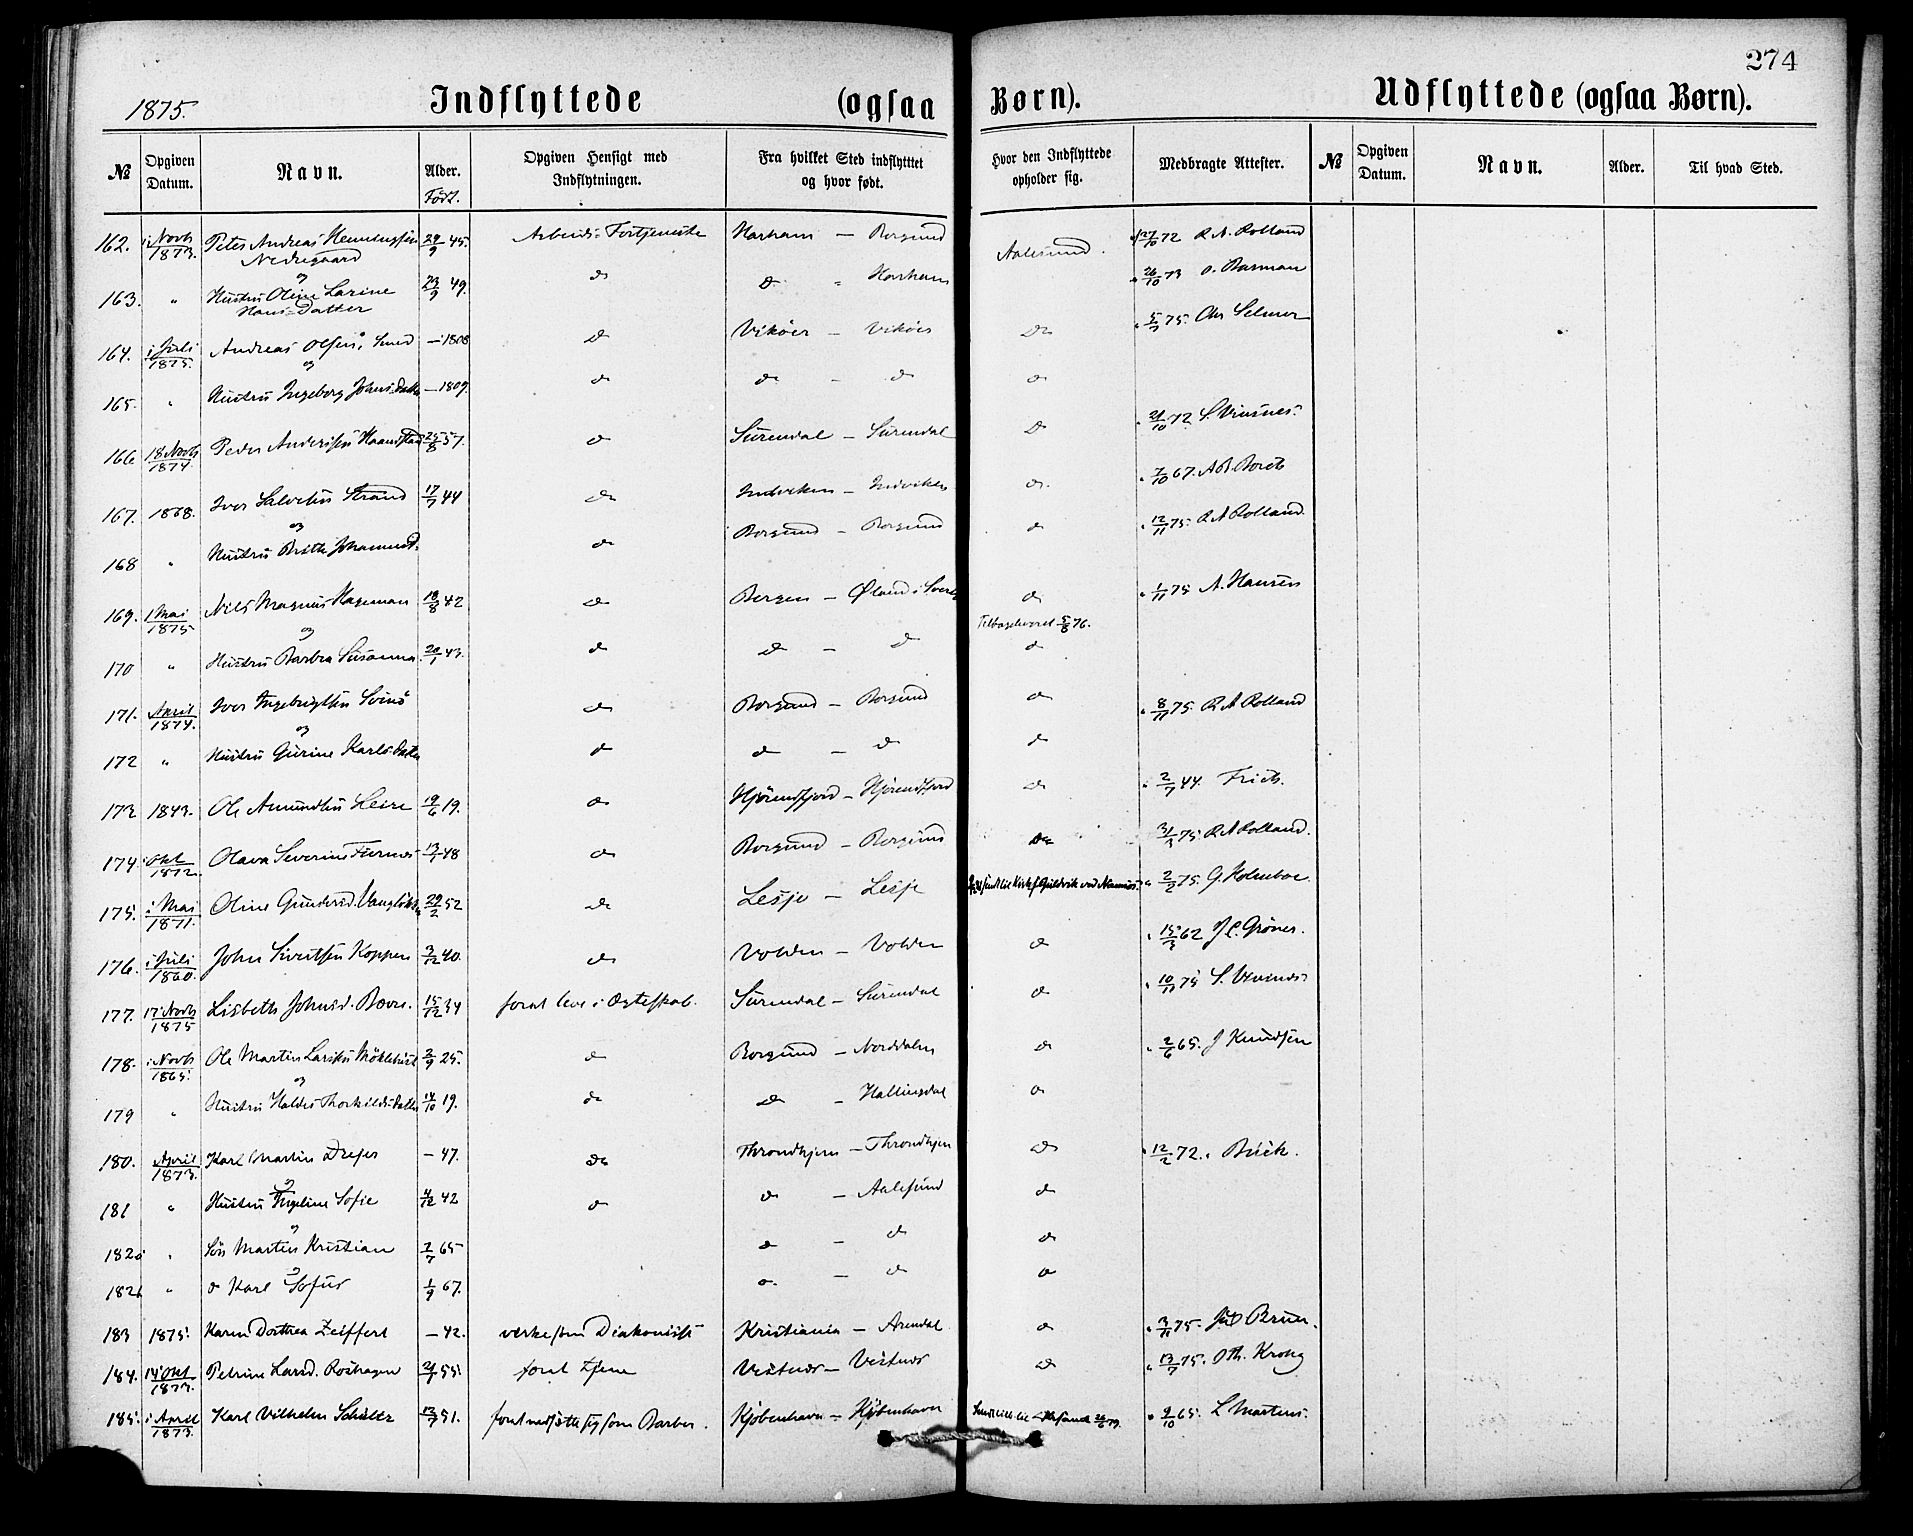 274
1875.
Indflyttede (ogsaa Børn).
Udflyttede (ogsaa Børn).
№
Opgiven Datum.
Navn.
Alder.
Født.
Opgiven Hensigt med Indflytningen.
Fra hvilket Sted indflytttet og hvor født.
Hvor den Indflyttede opholder sig.
Medbragte Attester.
№
Opgiven Datum.
Navn.
Alder.
Til hvad Sted.
162. i Novb 1873. Peter Andreas Henningsen Nedregaard 29/9 45. Arbeids-Fortjeneste Harham — Borgund Aalesund. 27/10 72 R A. Rolland
og
163. " Hustru Oline Larine Hans-Datter 23/9 49. do do " Harham " 26/10 73 o. Barman
164. i Juli 1875. Andreas Olsen — 1808 do Vikøer — Vikøer Do " 5/7 75. Chr Selmer
og
165. " Hustru Ingeborg Johns.datter — 1809. do do — do do
166 18 Novb 1874. Peder Andersen 25/8 57. do Surendal — Surendal Do " 21/10 72
167. 1868. Iver Salvesen Strand 17/7 44 do Indviken — Indviken do. " 7/10 67.
og
168 " Hustru Brithe Johannesd. do Borgund — Borgund do " 12/11 75. R A Rolland.
169. 1 Mai 1875. Nils Magnus Hageman 18/8 42 do Bergen — Øland i do " 1/11 75 A. Hansen
og
Tilbageleveret 5/8 76.
170 " Hustru Barbra Susanna. 20/1 43. do do — do do
171. April 1874. Iver Ingebrigtsen Svinø do Borgund — Borgund do " 8/11 75. R A Rolland
og
172 " Hustru Gurine Karls.datter do do — do do
173 1843. Ole Amundsen Leire 19/6 19. do Hjørendfjord — Hjørendfjord do " 2/7 44. Frich.
174. i Okt 1872. Olava Severine Furnes 13/1 48 do Borgund — Borgund Do 31/3 75. R A Rolland.
175. i Mai 1871. Oline Gundersd. 29/2 52 do Lesje — Lesje " 2/2 75. G. Holmboe.
176. i Juli 1860. John Sivertsen Koppen 3/12 40. do Volden — Volden do " 15/3 62
177. 17 Novb 1875 Lisbeth Johnsd. Bævre. 15/12 34 forat leve i Ægteskab. Surendal — Surendal do " 10/11 75
178. i Novb 1865. Ole Martin Larsen 2/9 25. do Borgund — Norddalen do " 2/6 65. J Knudsen
og
179 " Hustru Haldis Thorkildsdatter 14/10 19. do do — Hallingdal do
180. April 1873. Karl Martin Dreyer — 47. do Throndhjem — Throndhjem do " 12/2 72. Buck.
og
181 " Hustru Ingeline Sofie 4/12 42 do do — Aalesund do
og
182a " Søn Martin Kristian 2/7 65 do — do do
182b " do Karl Sofus 1/9 67. do — do do
183 1875. Karen Dorthea Zeiffert — 42. virke som Diakonisse Kristiania — Arendal. do " 3/11 75. Bruun.
184. 14 Okt 1873. Petrine Larsd. Roshagen 21/7 55. forat tjene Vestnes — Vestnes do " 13/7 75. Oth. Krohg
185. i April 1873. Karl Vilhelm Schultz 12/7 51. forat nedsætte sig som Barber. Kjøbenhavn — Kjøbenhavn " 9/10 65. L Martens.